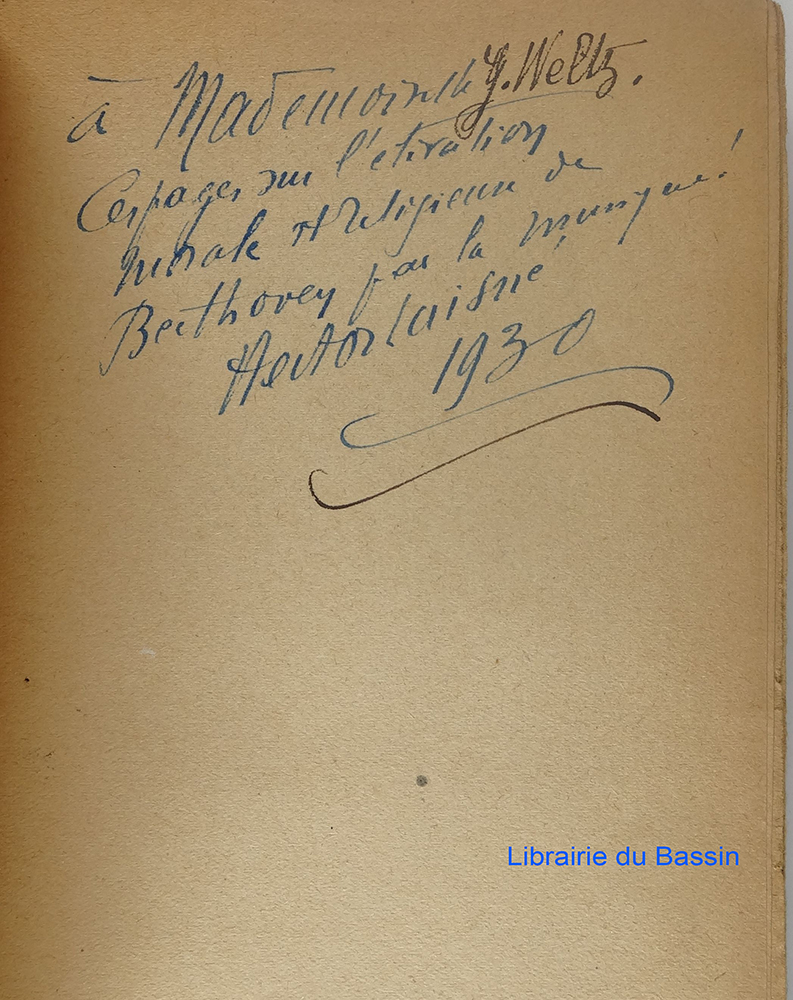 à Mademoiselle Y. Weltz.
Ces pages sur l'élévation
morale et religieuse de
Beethoven par la musique!
Hector Laisné
1930
Librairie du Bassin